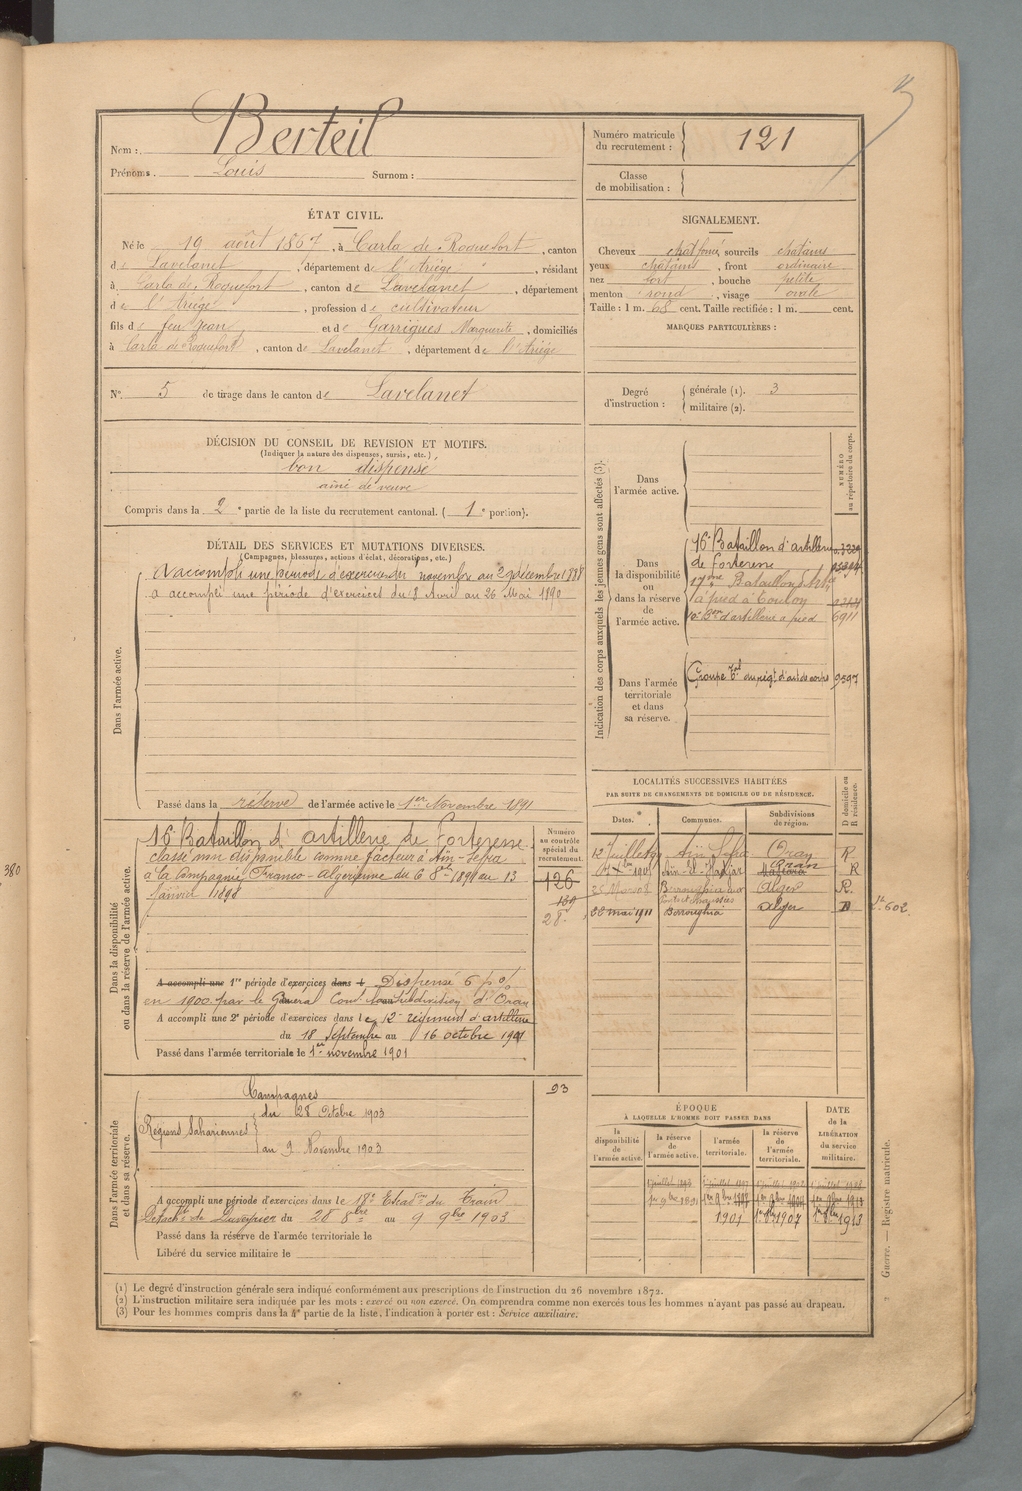 Nom : Berteil
Prénoms. Louis Surnom :
Numéro matricule du recrutement : 121
Classe de mobilisation :
ÉTAT CIVIL.
Né le 19 août 1867, à Carla de Roquefort, canton
de Lavelanet, département de l'Ariège, résidant
à Carla de Roquefort, canton de Lavelanet, département
de l'Ariége, profession de cultivateur
fils de feu Jean et de Garrigues Marguerite, domiciliés
à Carla de Roquefort, canton de Lavelanet, département de l'Ariége
SIGNALEMENT.
Cheveux chat foncé, sourcils chatains
yeux chatains, front ordinaire
nez fort, bouche petite
menton rond, visage ovale
Taille : 1 m. 68 cent. Taille rectifiée : 1 m. cent.
MARQUES PARTICULIÈRES :
N° 5 de tirage dans le canton de Lavelanet
Degré d'instruction : générale (1). 3
militaire (2).
DÉCISION DU CONSEIL DE REVISION ET MOTIFS.
(Indiquer la nature des dispenses, sursis, etc.)
bon dispensé
ainé de veuve
Compris dans la 2e partie de la liste du recrutement cantonal. (1e portion).
DÉTAIL DES SERVICES ET MUTATIONS DIVERSES.
(Campagnes, blessures, actions d'éclat, décorations, etc.)
Dans l'armée active.
A accompli une période d'exercices du novembre au 29 décembre 1888
a accompli une période d'exercices du 8 Avril au 26 Mai 1890
Passé dans la réserve de l'armée active le 1er Novembre 1891
Indication des corps auxquels les jeunes gens sont affectés (3).
NUMÉRO au répertoire du corps.
Dans l'armée active.
Dans la disponibilité ou dans la réserve de l'armée active.
16e Bataillon d'artillerie
de forteresse
à pied à Toulon
d'artillerie à pied 6911
Dans l'armée territoriale et dans sa réserve.
Groupe Tal du régt d'art. de corps 9597
LOCALITÉS SUCCESSIVES HABITÉES
PAR SUITE DE CHANGEMENTS DE DOMICILE OU DE RÉSIDENCE.
Dates. Communes. Subdivisions de région. D domicile ou R résidence.
Aïn Sefra Oran R
Aïn-el-Hadjar Oran R
Berrouaghia Alger R.
22 mai 1911 Berrouaghia Alger
Dans la disponibilité ou dans la réserve de l'armée active.
Numéro au contrôle spécial du recrutement.
16e Bataillon d'artillerie de Forteresse
classé non disponible comme facteur à Aïn-Sefra
à la Compagnie Franco-Algérienne du 6 8bre 1891 au 13
Janvier 1898
126
28.
A accompli une 1re période d'exercices dans l Dispensé
en 1900 par le Général Comt la Subdivision d'Oran
A accompli une 2e période d'exercices dans le 12e régiment d'artillerie
du 18 Septembre au 16 octobre 1901
Passé dans l'armée territoriale le 1er novembre 1901
Dans l'armée territoriale et dans sa réserve.
93
Campagnes
Régions Sahariennes du 28 Octobre 1903
au 9 Novembre 1903
A accompli une période d'exercices dans le 18e Escadon du Train
du 28 8bre au 9 9bre 1903
Passé dans la réserve de l'armée territoriale le
Libéré du service militaire le
ÉPOQUE
À LAQUELLE L'HOMME DOIT PASSER DANS
la disponibilité de l'armée active.
la réserve de l'armée active.
l'armée territoriale.
la réserve de l'armée territoriale.
DATE de la LIBÉRATION du service militaire.
1901 1er 9bre 1907 1er 9bre 1913
(1) Le degré d'instruction générale sera indiqué conformément aux prescriptions de l'instruction du 26 novembre 1872.
(2) L'instruction militaire sera indiquée par les mots : exercé ou non exercé. On comprendra comme non exercés tous les hommes n'ayant pas passé au drapeau.
(3) Pour les hommes compris dans la 4e partie de la liste, l'indication à porter est : Service auxiliaire.
Guerre. — Registre matricule.
380